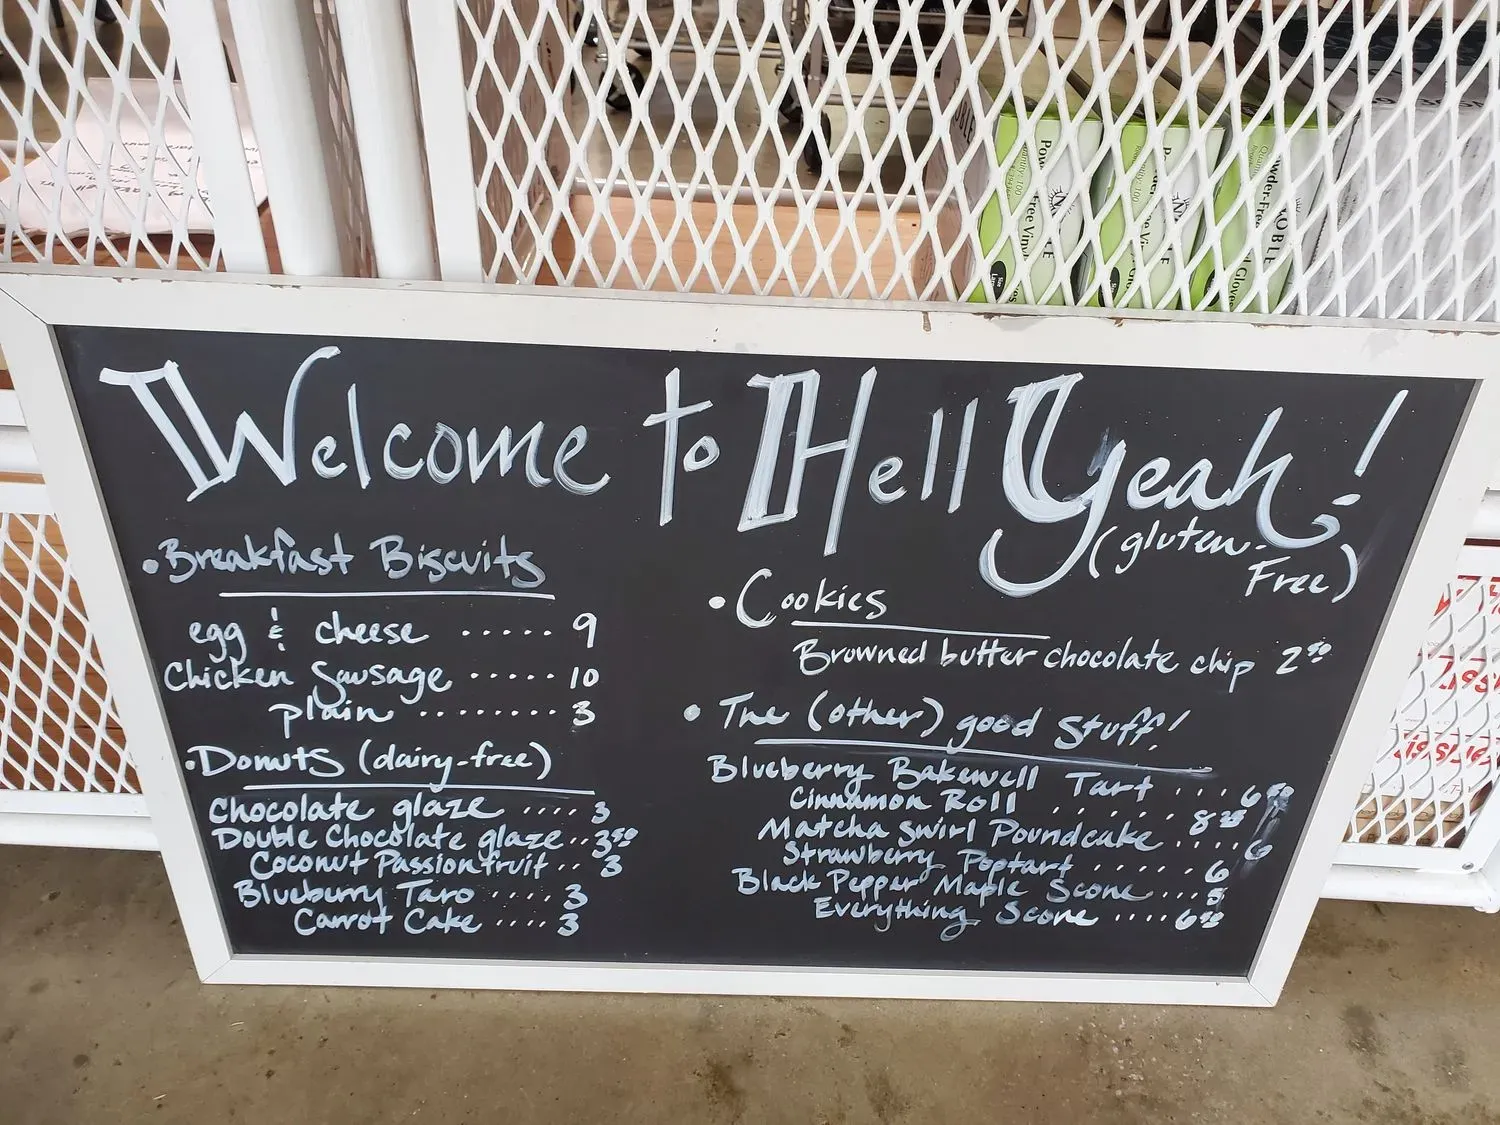 Welcome to Hell Yeah!
(gluten-
Free)
• Breakfast Biscuits
egg & cheese ..... 9
Chicken Sausage ..... 10
plain ........ 3
• Donuts (dairy-free)
Chocolate glaze .... 3
Double Chocolate glaze .. 3.50
Coconut Passionfruit .. 3
Blueberry Taro .... 3
Carrot Cake .... 3
• Cookies
Browned butter chocolate chip 2.50
• The (other) good stuff!
Blueberry Bakewell Tart ... 6.50
Cinnamon Roll ...... 8.25
Matcha swirl Poundcake .... 6
Strawberry Poptart ..... 6
Black Pepper Maple Scone ... 5
Everything Scone .... 6.50
NOBLE
Powder-Free Vinyl Gloves